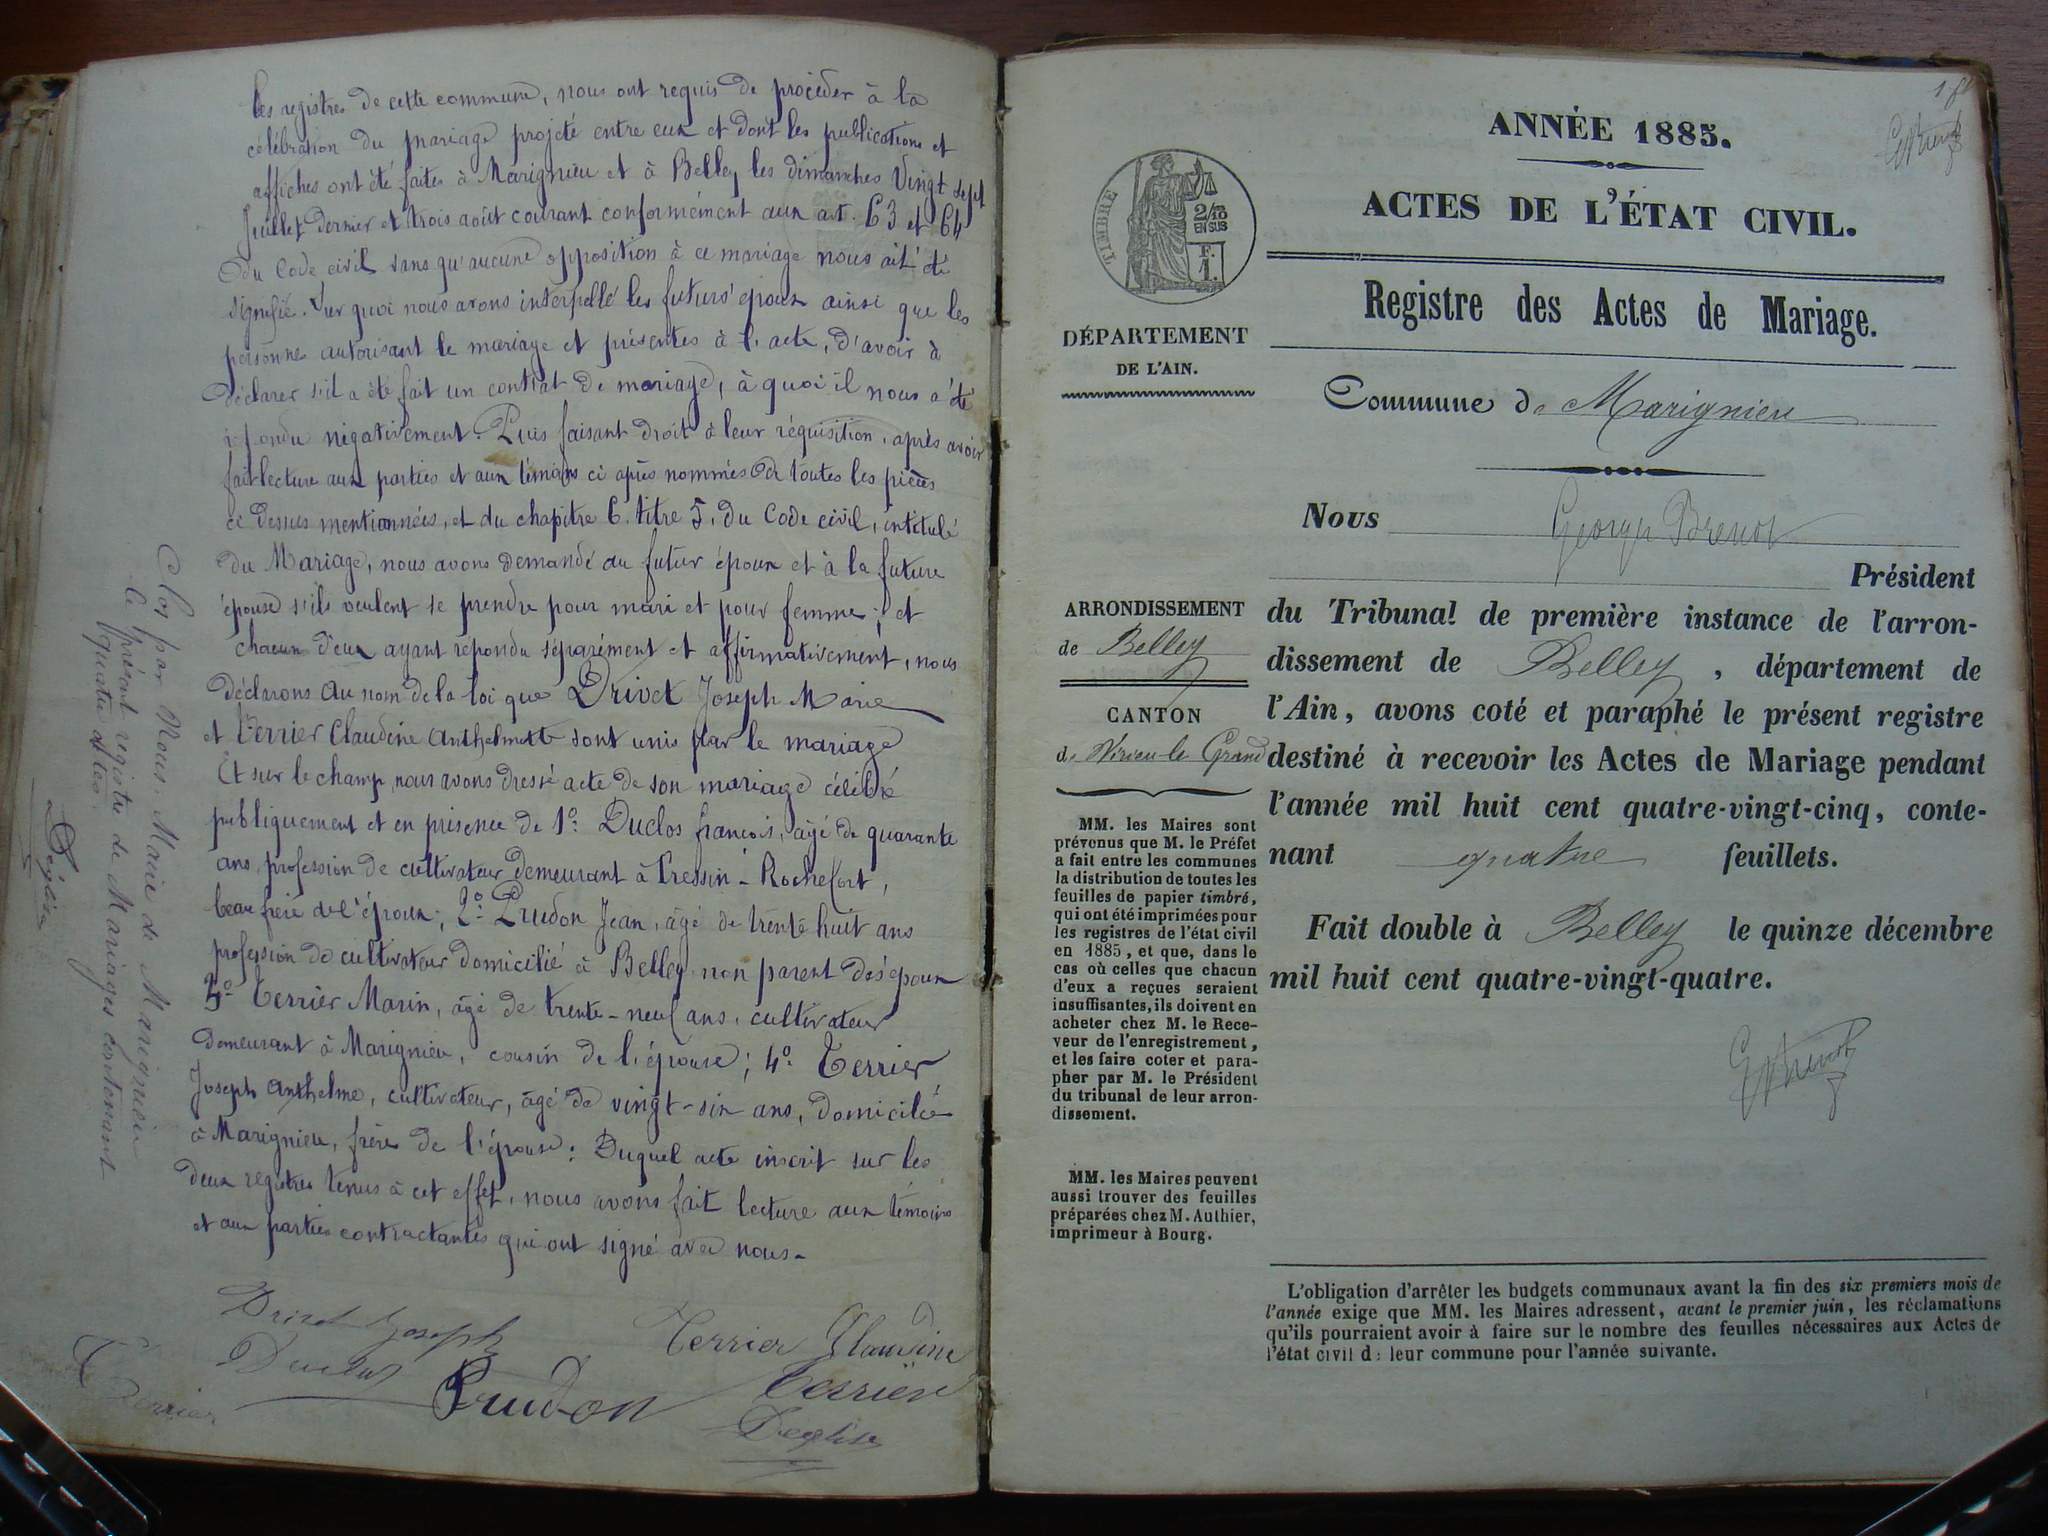 les registres de cette commune, nous ont requis de procéder à la
célébration du mariage projeté entre eux et dont les publications et
affiches ont été faites à Marignieu et à Belley les dimanches Vingt sept
Juillet dernier et trois août courant conformément aux art. 63 et 64
du Code civil sans qu'aucune opposition à ce mariage nous ait été
signifié. Sur quoi nous avons interpellé les futurs époux ainsi que les
personnes autorisant le mariage et présentes à l'acte, d'avoir à
déclarer s'il a été fait un contrat de mariage, à quoi il nous a été
répondu négativement. Puis faisant droit à leur réquisition, après avoir
fait lecture aux parties et aux témoins ci après nommés de toutes les pièces
ci dessus mentionnées, et du chapitre 6. titre 5, du Code civil, intitulé
du Mariage, nous avons demandé au futur époux et à la future
épouse s'ils veulent se prendre pour mari et pour femme; et
chacun d'eux ayant répondu séparément et affirmativement, nous
déclarons au nom de la loi que Drivet Joseph Marie
et Terrier Claudine Anthelmette sont unis par le mariage
Et sur le champ, nous avons dressé acte de son mariage célébré
publiquement et en présence de 1º Duclos françois, âgé de quarante
ans, profession de cultivateur demeurant à Cressin-Rochefort,
beau frère de l'époux; 2º Prudon Jean, âgé de trente huit ans
profession de cultivateur domicilié à Belley non parent des époux
3º Terrier Marin, âgé de trente-neuf ans, cultivateur
demeurant à Marignieu, cousin de l'épouse; 4º Terrier
Joseph Anthelme, cultivateur, âgé de vingt-six ans, domicilié
à Marignieu, frère de l'épouse: Duquel acte inscrit sur les
deux registres tenus à cet effet, nous avons fait lecture aux témoins
et aux parties contractantes qui ont signé avec nous.
Drivet Joseph
Terrier Claudine
Duclos
Prudon
Terrier
Terrier
Deglise
Clos par Nous, Maire de Marignieu
le présent registre de Mariages contenant
quatre actes.
Deglise
182
ANNÉE 1885.
ACTES DE L'ÉTAT CIVIL.
Registre des Actes de Mariage.
TIMBRE
2/10
EN SUS
F.
1.
DÉPARTEMENT
DE L'AIN.
Commune de Marignieu
Nous Georges Brenot
Président
ARRONDISSEMENT
de Belley
CANTON
de Virieu-le Grand
du Tribunal de première instance de l'arron-
dissement de Belley, département de
l'Ain, avons coté et paraphé le présent registre
destiné à recevoir les Actes de Mariage pendant
l'année mil huit cent quatre-vingt-cinq, conte-
nant quatre feuillets.
Fait double à Belley le quinze décembre
mil huit cent quatre-vingt-quatre.
MM. les Maires sont
prévenus que M. le Préfet
a fait entre les communes
la distribution de toutes les
feuilles de papier timbré,
qui ont été imprimées pour
les registres de l'état civil
en 1885, et que, dans le
cas où celles que chacun
d'eux a reçues seraient
insuffisantes, ils doivent en
acheter chez M. le Rece-
veur de l'enregistrement,
et les faire coter et para-
pher par M. le Président
du tribunal de leur arron-
dissement.
MM. les Maires peuvent
aussi trouver des feuilles
préparées chez M. Authier,
imprimeur à Bourg.
L'obligation d'arrêter les budgets communaux avant la fin des six premiers mois de
l'année exige que MM. les Maires adressent, avant le premier juin, les réclamations
qu'ils pourraient avoir à faire sur le nombre des feuilles nécessaires aux Actes de
l'état civil de leur commune pour l'année suivante.